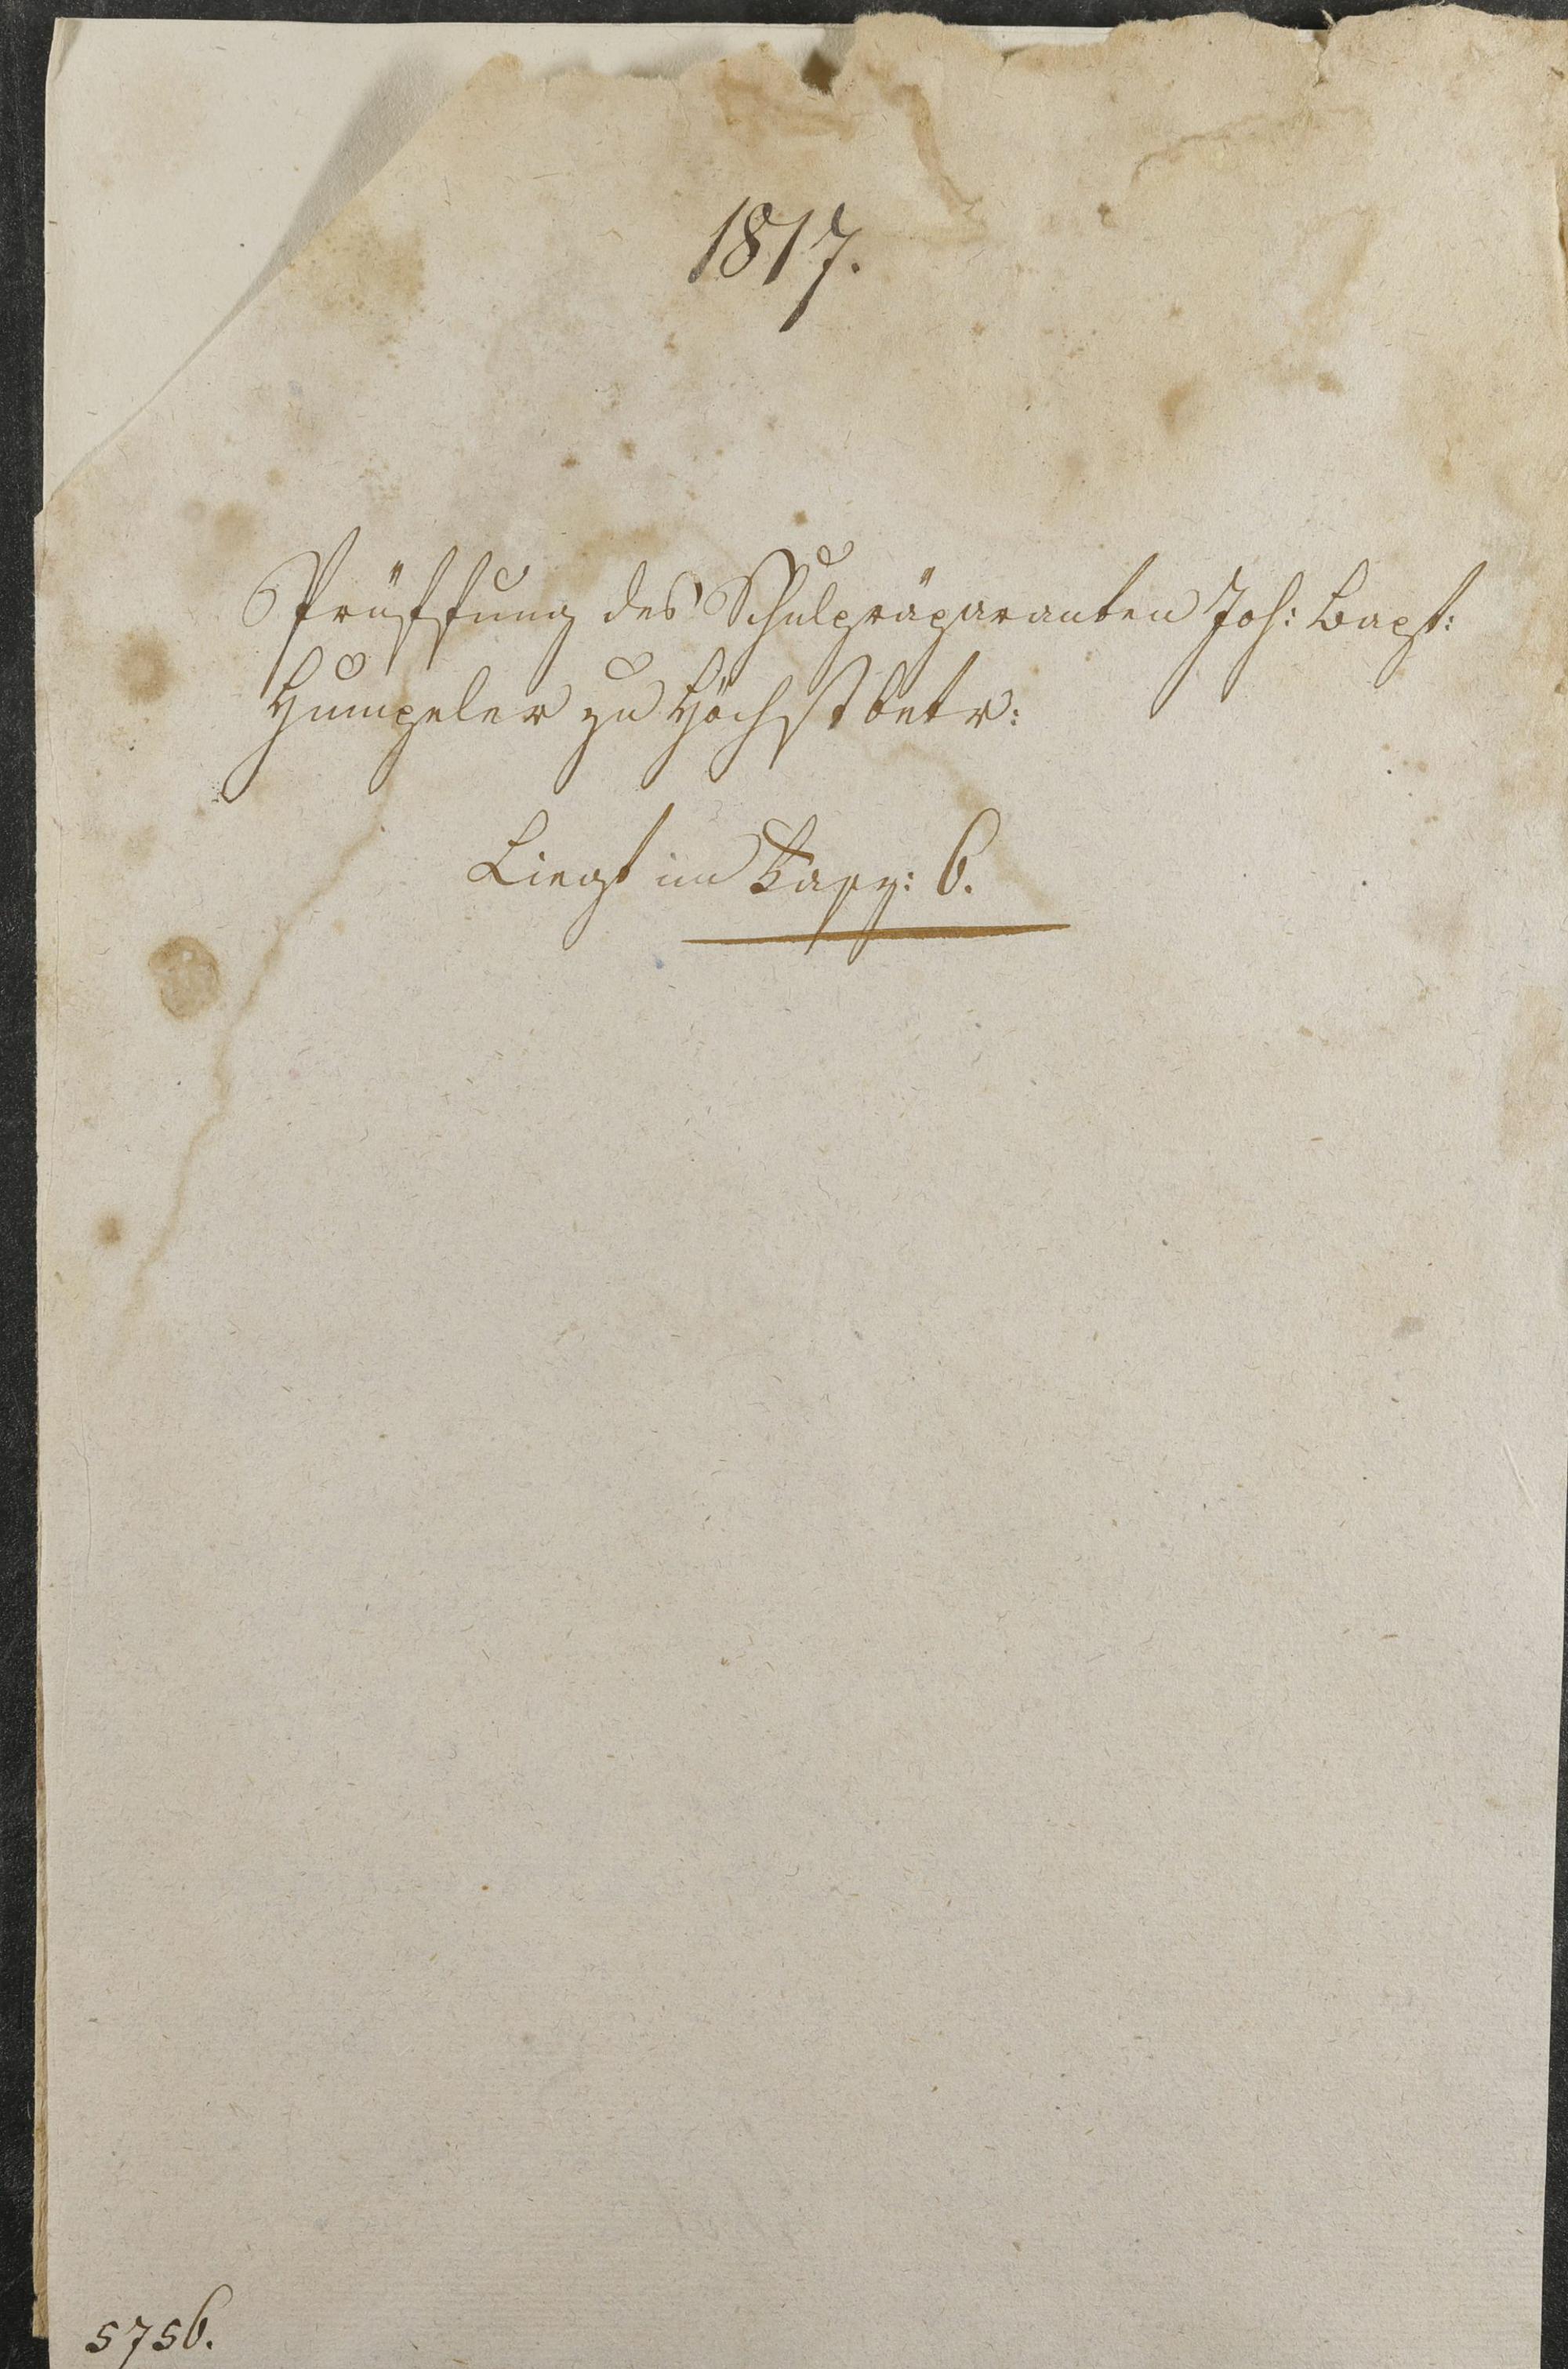 1817.
Prüffung des Schulpräparanten Joh: Bapt:
Humpeler zu Höchst betr:
Liegt im Fasz: 6.
5756.